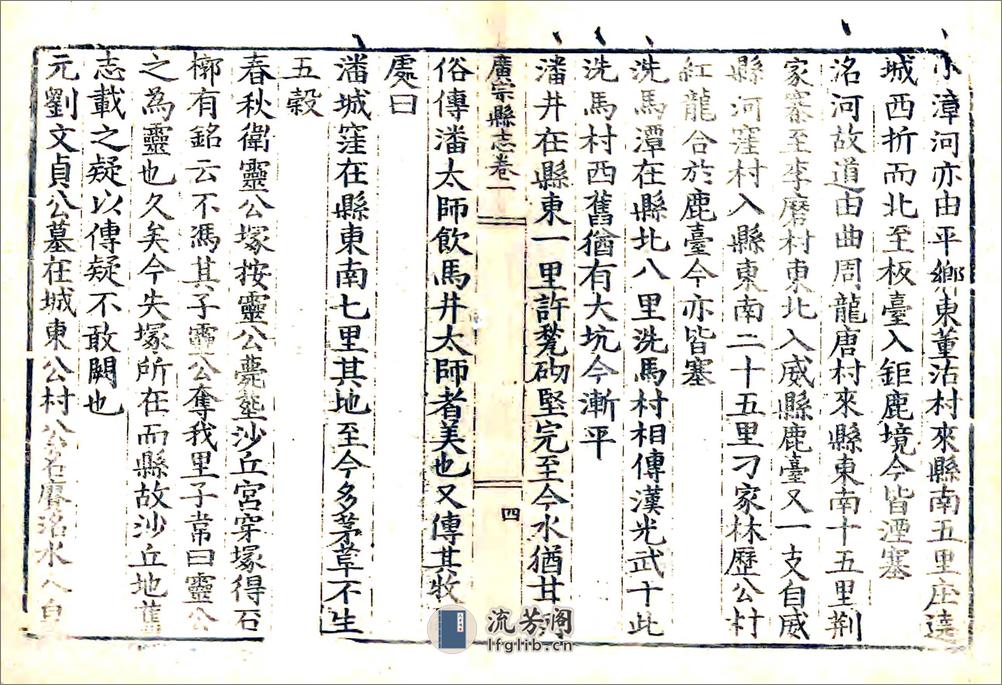 小漳河亦由平鄉東董沽村來縣南五里庄遶
城西折而北至板臺入鉅鹿境今皆湮塞
洺河故道由曲周龍唐村來縣東南十五里荆
家寨至李磨村東北入威縣鹿臺又一支自威
縣河窪村入縣東南二十五里刁家林歷公村
紅龍合於鹿臺今亦皆塞
洗馬潭在縣北八里洗馬村相傳漢光武于此
洗馬村西舊猶有大坑今漸平
潘井在縣東一里許甃砌堅完至今水猶甘
廣宗縣志卷一
四
俗傳潘太師飲馬井太師者美也又傳其牧
處曰
潘城窪在縣東南七里其地至今多茅草不生
五穀
春秋衛靈公塚按靈公薨塟沙丘宮穿塚得石
槨有銘云不馮其子靈公奪我里子常曰靈公
之為靈也久矣今失塚所在而縣故沙丘地舊
志載之疑以傳疑不敢闕也
元劉文貞公墓在城東公村公名賡洺水人
流芳阁
lfglib.cn